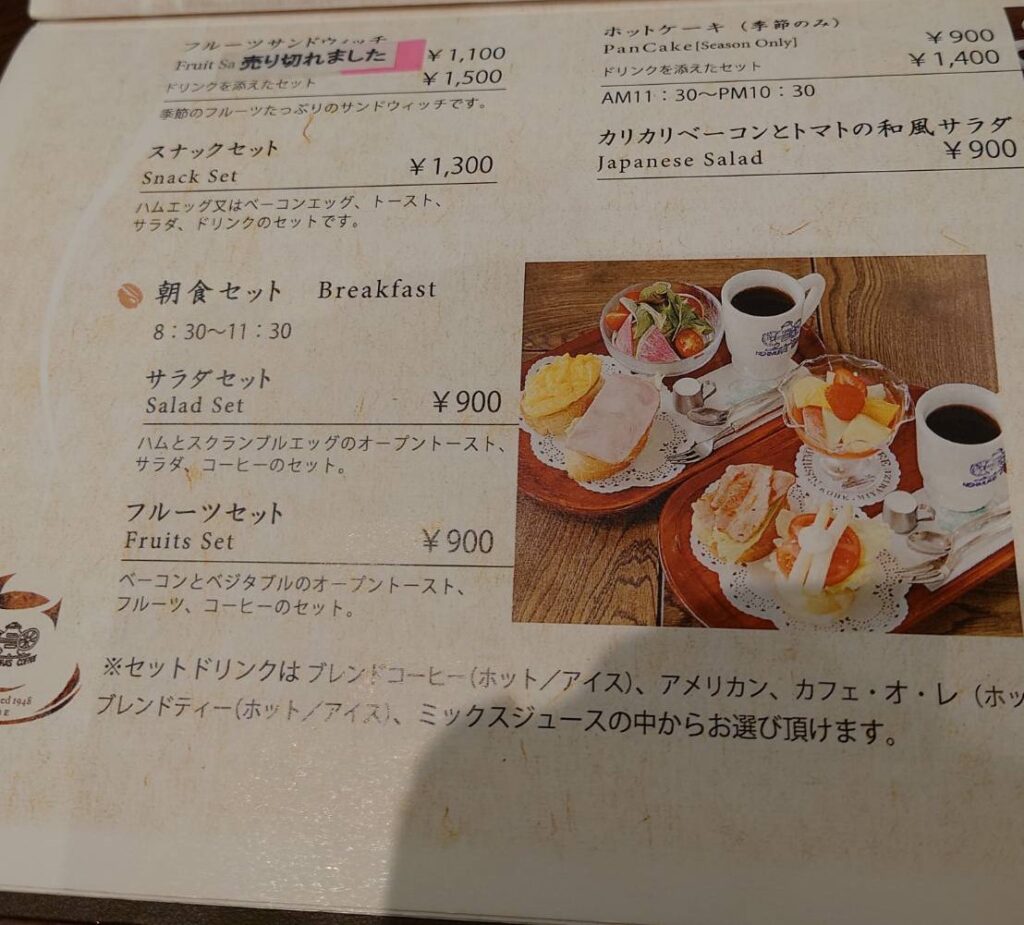 フルーツサンドウィッチ
Fruit Sa 売り切れました ￥1,100
ドリンクを添えたセット ￥1,500
季節のフルーツたっぷりのサンドウィッチです。
スナックセット
Snack Set ￥1,300
ハムエッグ又はベーコンエッグ、トースト、
サラダ、ドリンクのセットです。
ホットケーキ（季節のみ）
PanCake[Season Only] ￥900
ドリンクを添えたセット ￥1,400
AM11：30～PM10：30
カリカリベーコンとトマトの和風サラダ
Japanese Salad ￥900
朝食セット Breakfast
8：30～11：30
サラダセット
Salad Set ￥900
ハムとスクランブルエッグのオープントースト、
サラダ、コーヒーのセット。
フルーツセット
Fruits Set ￥900
ベーコンとベジタブルのオープントースト、
フルーツ、コーヒーのセット。
※セットドリンクは ブレンドコーヒー(ホット／アイス)、アメリカン、カフェ・オ・レ（ホッ
ブレンドティー(ホット／アイス)、ミックスジュースの中からお選び頂けます。
1948